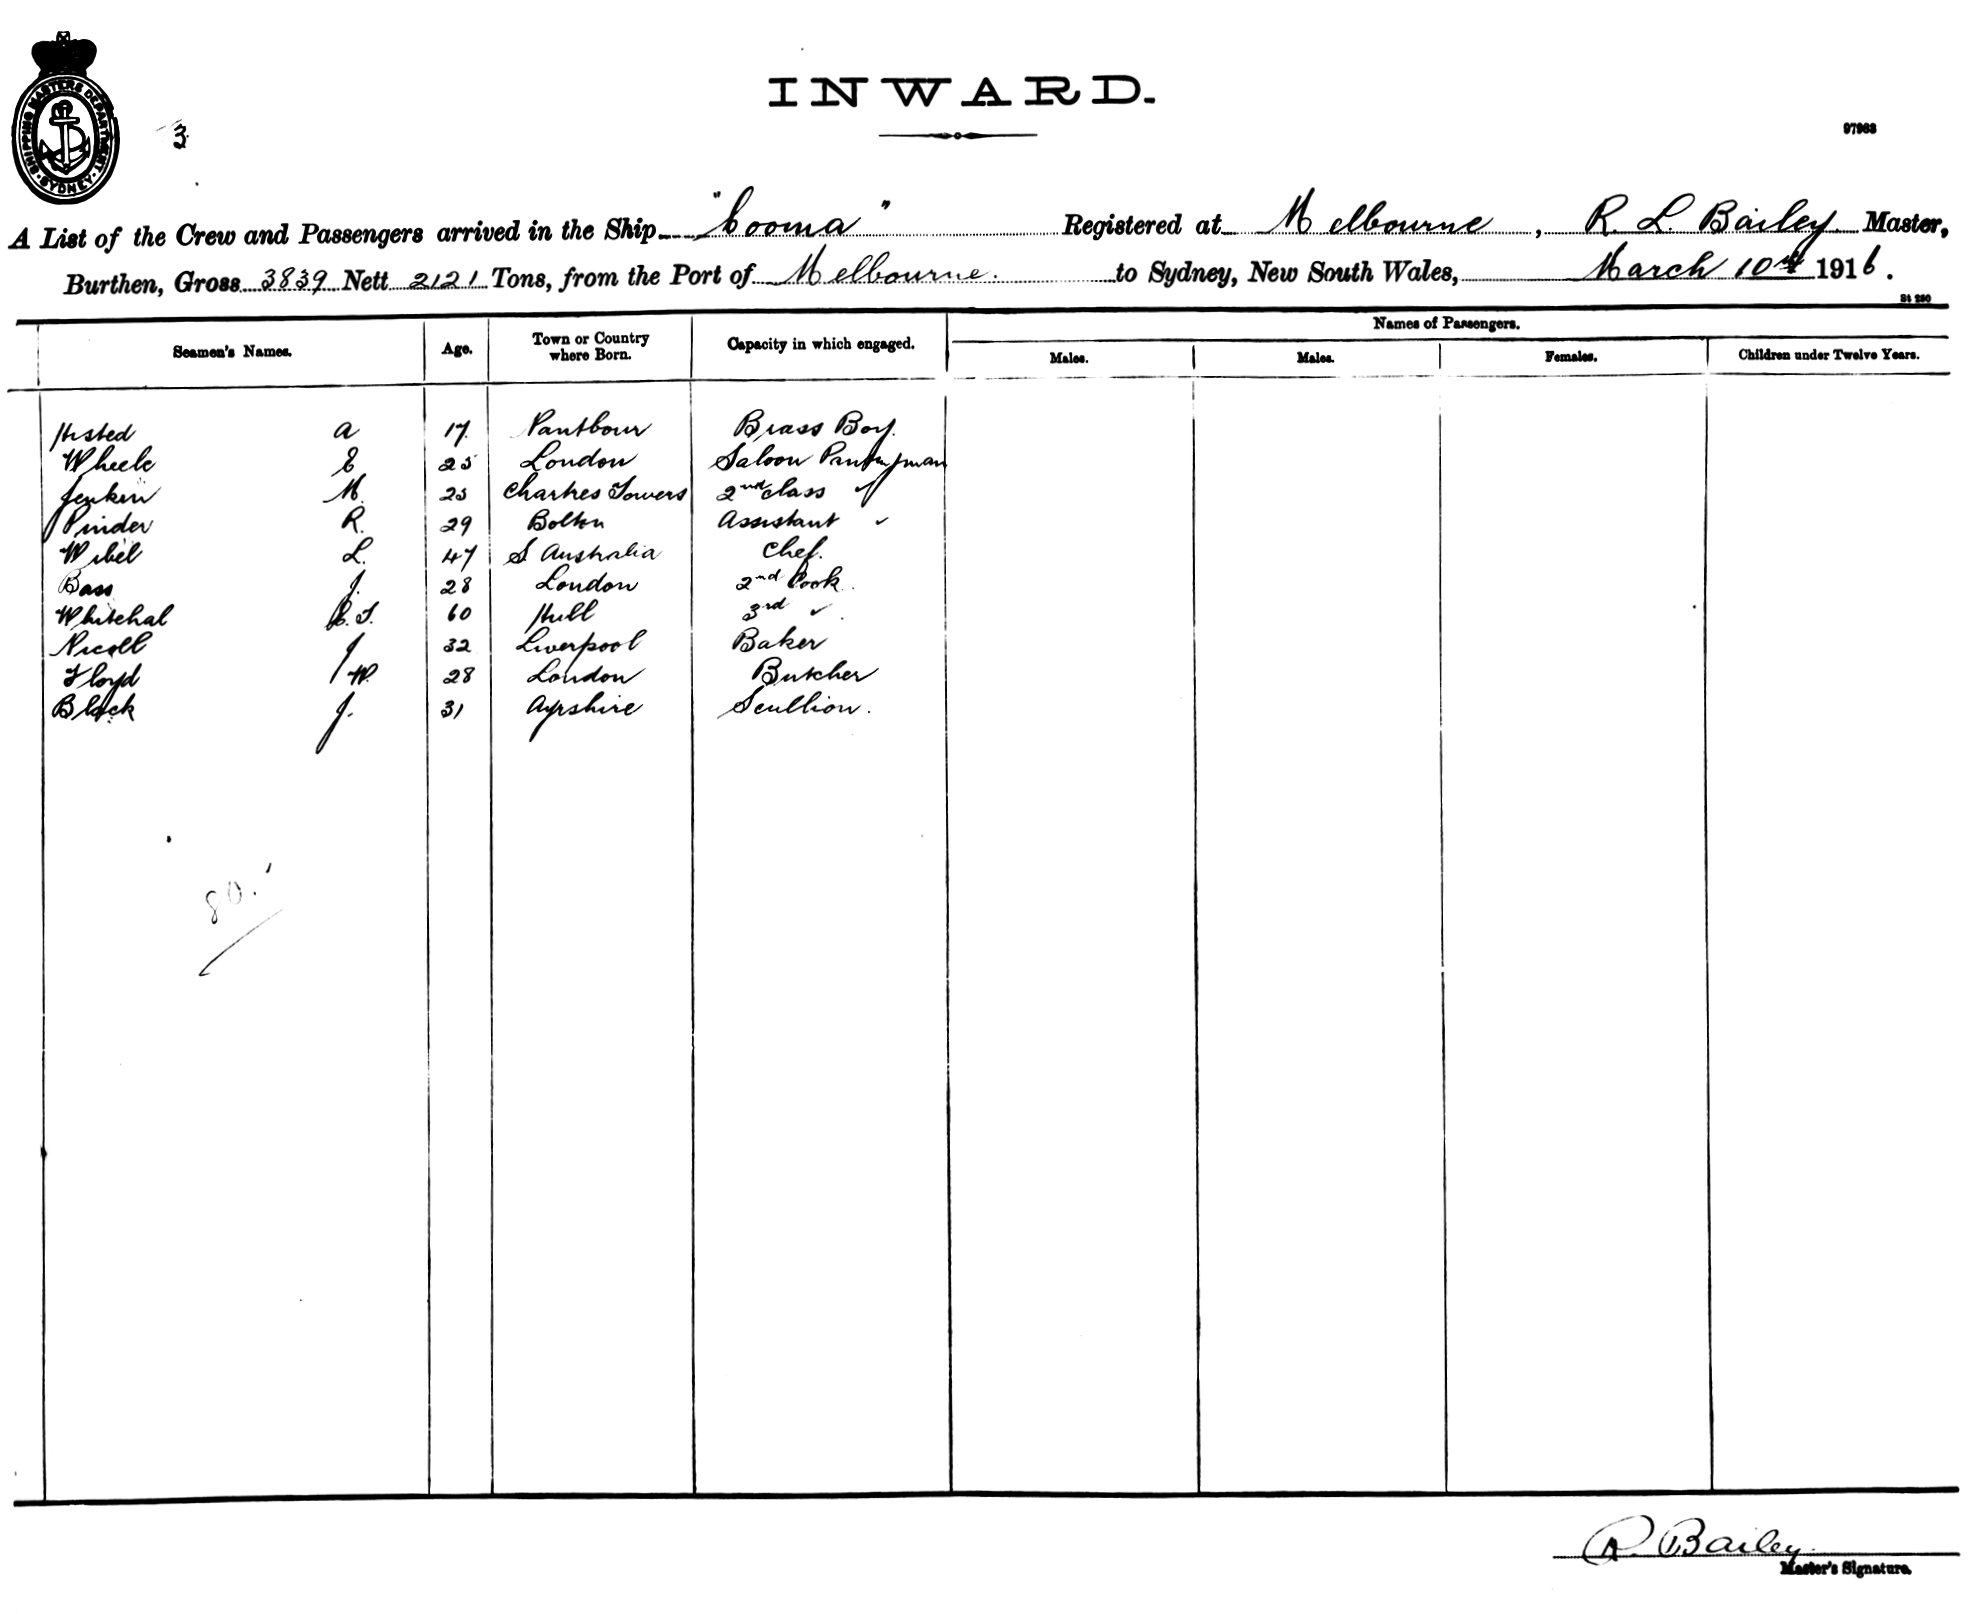 SHIPPING MASTERS DEPARTMENT
SYDNEY
3
INWARD.
97963
A List of the Crew and Passengers arrived in the Ship "Cooma" Registered at Melbourne, R. L. Bailey Master,
Burthen, Gross 3839 Nett 2121 Tons, from the Port of Melbourne. to Sydney, New South Wales, March 10th 1916.
St 280
Seamen's Names. Age. Town or Country where Born. Capacity in which engaged. Names of Passengers.
Males. Males. Females. Children under Twelve Years.
Husted A 17 Brass Boy.
E 25 London Saloon Pantryman
Jenkin M. 25 Chartres Towers 2nd class ✓
Pinder R. 29 Bolton Assistant ✓
Wibel L. 47 S Australia Chef.
Bass J. 28 London 2nd Cook.
Whitehal 60 Hull 3rd ✓
Nicoll J 32 Liverpool Baker
Floyd W. 28 London Butcher
Black J. 31 Ayrshire Scullion.
80.
R. Bailey.
Master's Signature.